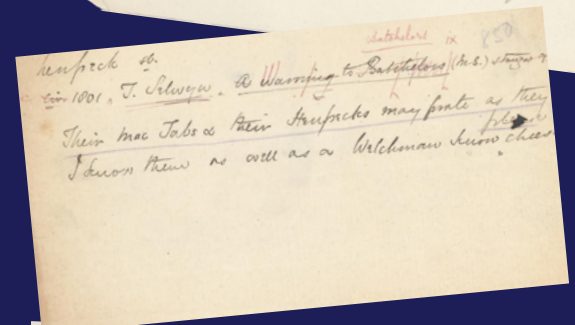 Batchelors ix 850
henpeck sb.
Circ 1801. T. Selwyn. A Warning to Batchelors (M.S.)
Their Mac Jabs & their Henpecks may prate as they please
I know them as well as a Welchman know cheese